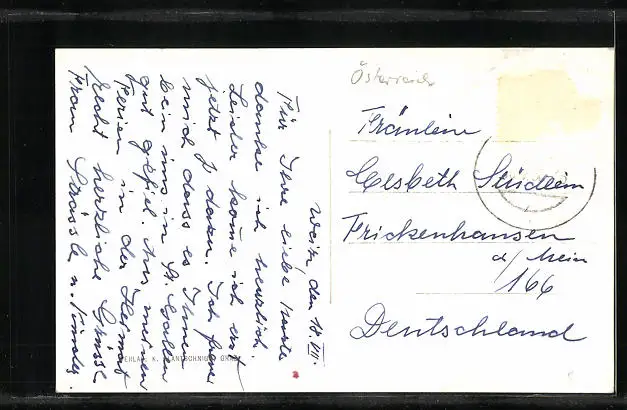 Österreich
Fräulein
Elsbeth Stüdlein
Frickenhausen
a/Main
166
Deutschland
den 18. VII.
Für Ihre liebe Karte
danke ich herzlich.
Leider komme ich erst
jetzt dazu. Ich freue
mich dass es Ihnen
bei uns in St. Gallen
gut gefiel. Aus meinen
Ferien in der Heimat
recht herzliche Grüsse
Frau u. Kinder.
VERLAG K. GRAZ